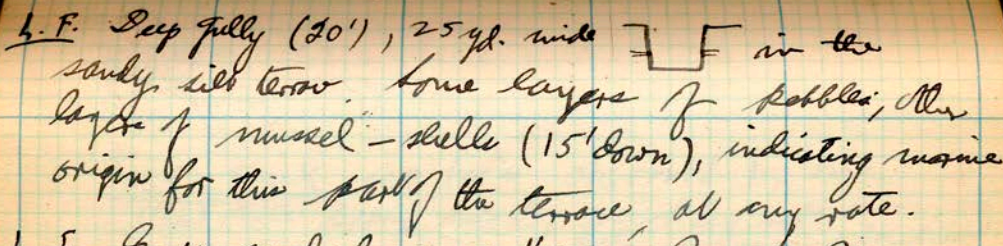 L.F. Deep gully (20'), 25 yd. wide in the
sandy silt terrace. Some layers of pebbles, other
layers of mussel-shells (15' down), indicating marine
origin for this part of the terrace, at any rate.